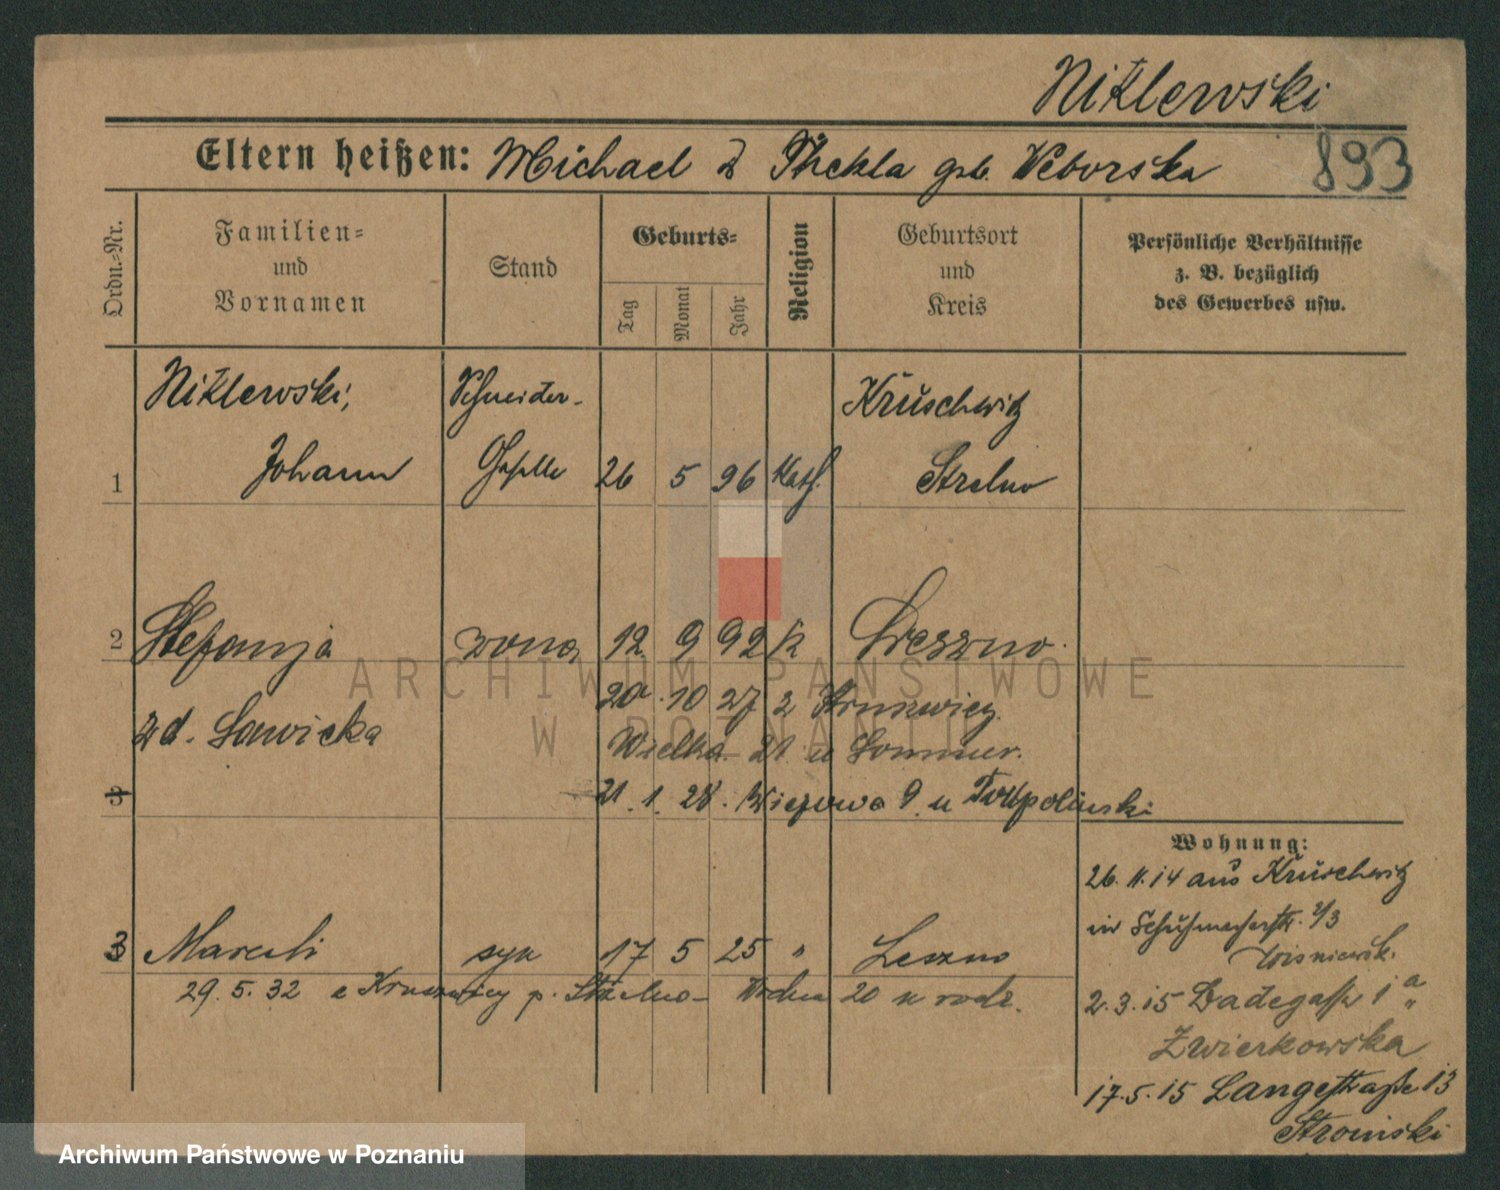 Niklewski
Eltern heißen: Michael & Thekla geb. Veborska
893
Ordn.-Nr.
Familien-
und
Vornamen
Stand
Geburts-
Tag
Monat
Jahr
Religion
Geburtsort
und
Kreis
Persönliche Verhältnisse
z. B. bezüglich
des Gewerbes usw.
Niklewski, Schneider- Kruschwitz
1 Johann Geselle 26 5 96 Kath. Strelno
2 Stefanja żona 12 9 92 k
20. 10 27 z Kruszwicy
zd. Sawicka
Wielka 21 u Sommer.
3
21. 1. 28. 9 u
Wohnung:
26.11.14 aus Kruschwitz
in Schuhmacherstr. 2/3
Wisniewsk.
3 Marceli syn 17 5 25 " Leszno
29.5.32 z Kruszwicy p. Strzelno - Wodna 20 u rodz.
2.3.15 Badegasse 1 a
Zwierkowska
17.5.15 Langestraße 13
Stroinski
ARCHIWUM PAŃSTWOWE
W POZNANIU
Archiwum Państwowe w Poznaniu